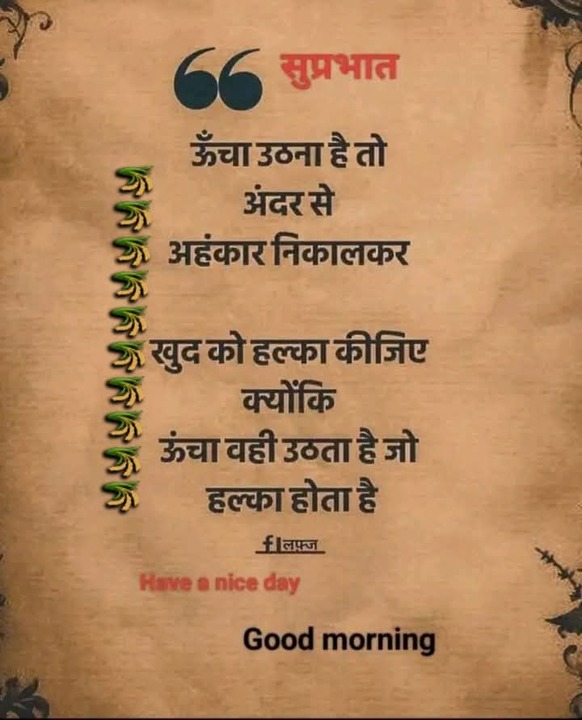 सुप्रभात
ऊँचा उठना है तो
अंदर से
अहंकार निकालकर
खुद को हल्का कीजिए
क्योंकि
ऊंचा वही उठता है जो
हल्का होता है
f|लफ़्ज
Have a nice day
Good morning